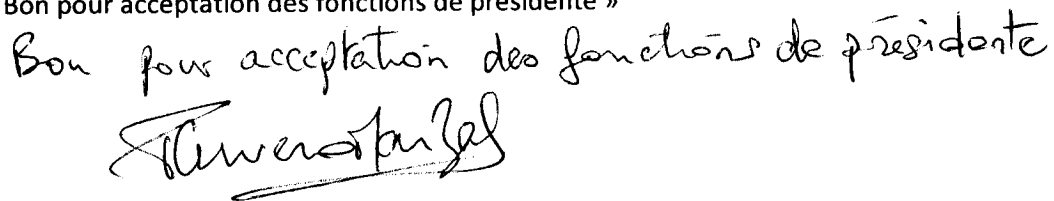 Bon pour acceptation des fonctions de présidente »
Bon pour acceptation des fonctions de présidente